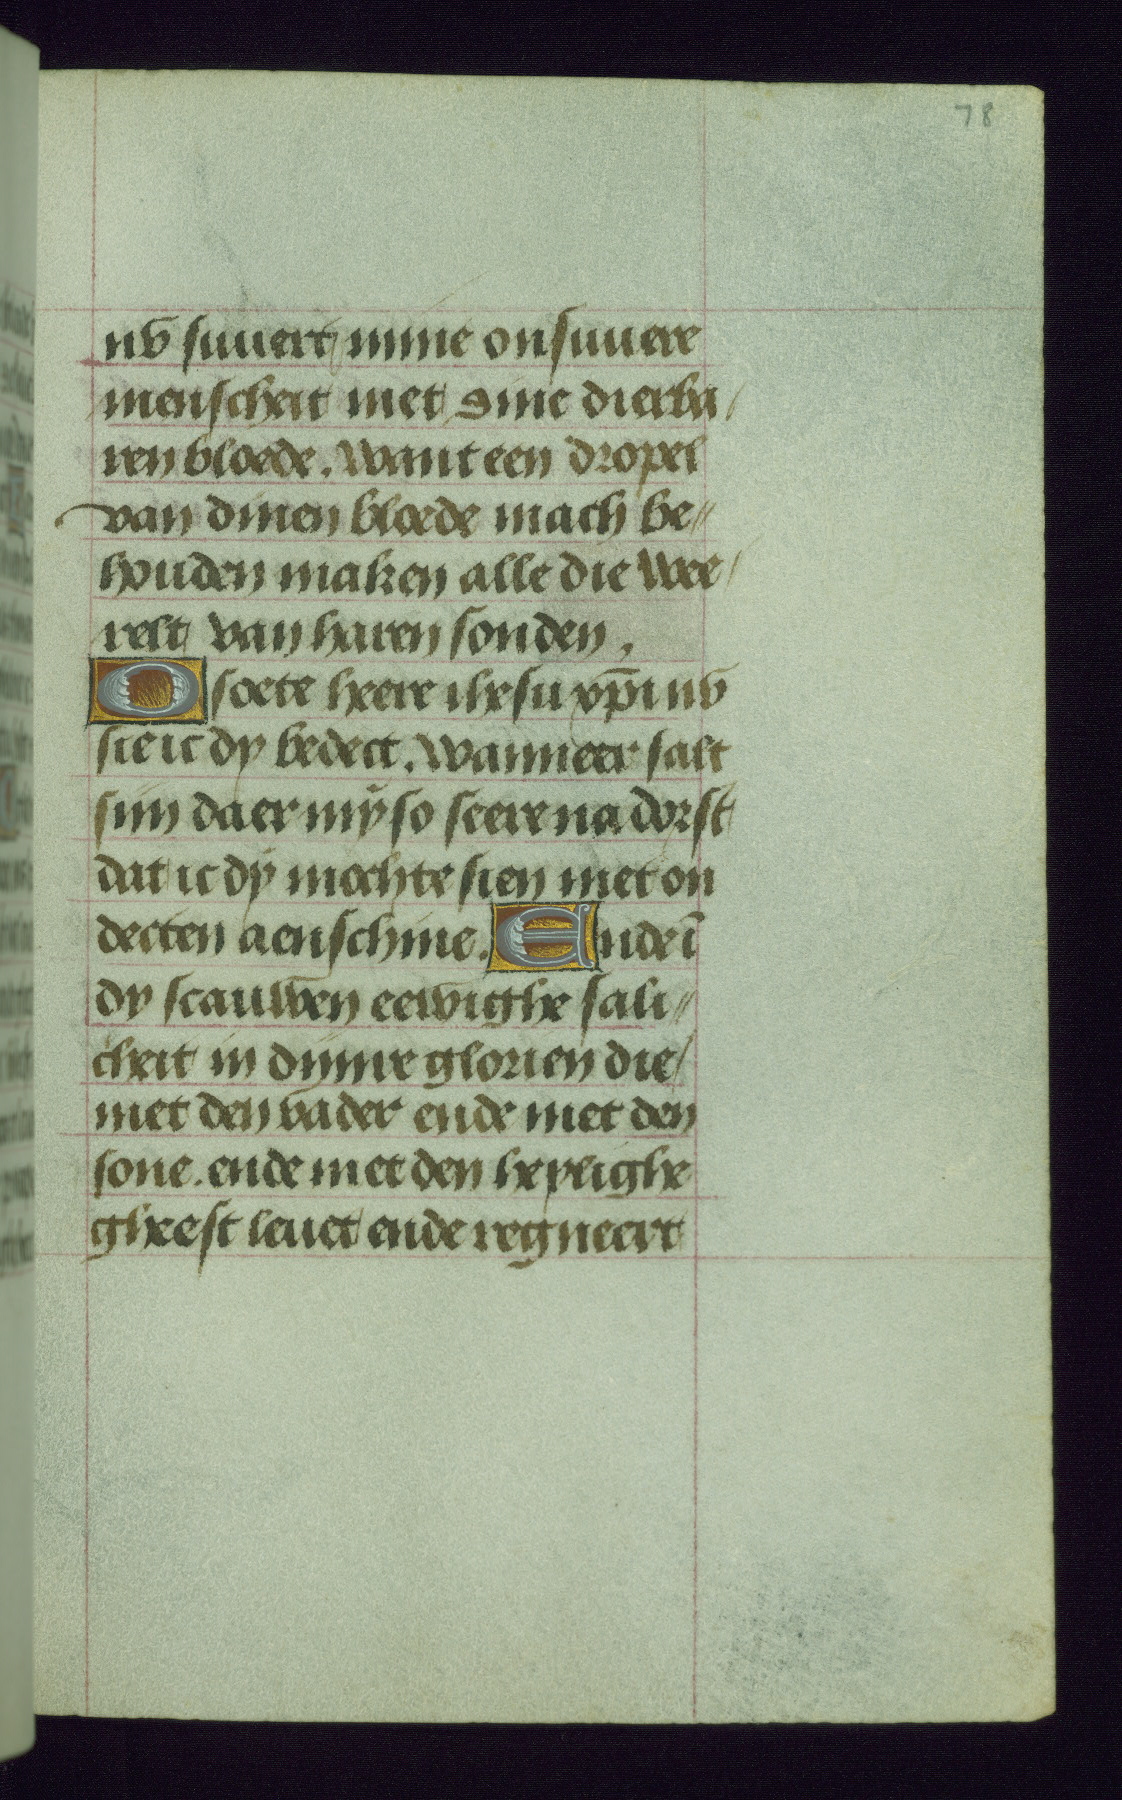 78
nv suuert mine onsuuere
menscheit met dine dierba/
ren bloede. want een dropel
van dinen bloede mach be//
houden maken alle die wee/
relt van haren sonden.
O soete heere ihesu xp̄i nv
sie ic dy bedect. wanneer salt
siin daer mÿ so seere na dorst
dat ic dÿ mochte sien met on
decten aenschine. Ende ī
dy scauwen eewighe sali//
cheit in dijnre glorien die/
met den vader ende met den
sone. ende met den heyeighe
gheest leuet ende regneert